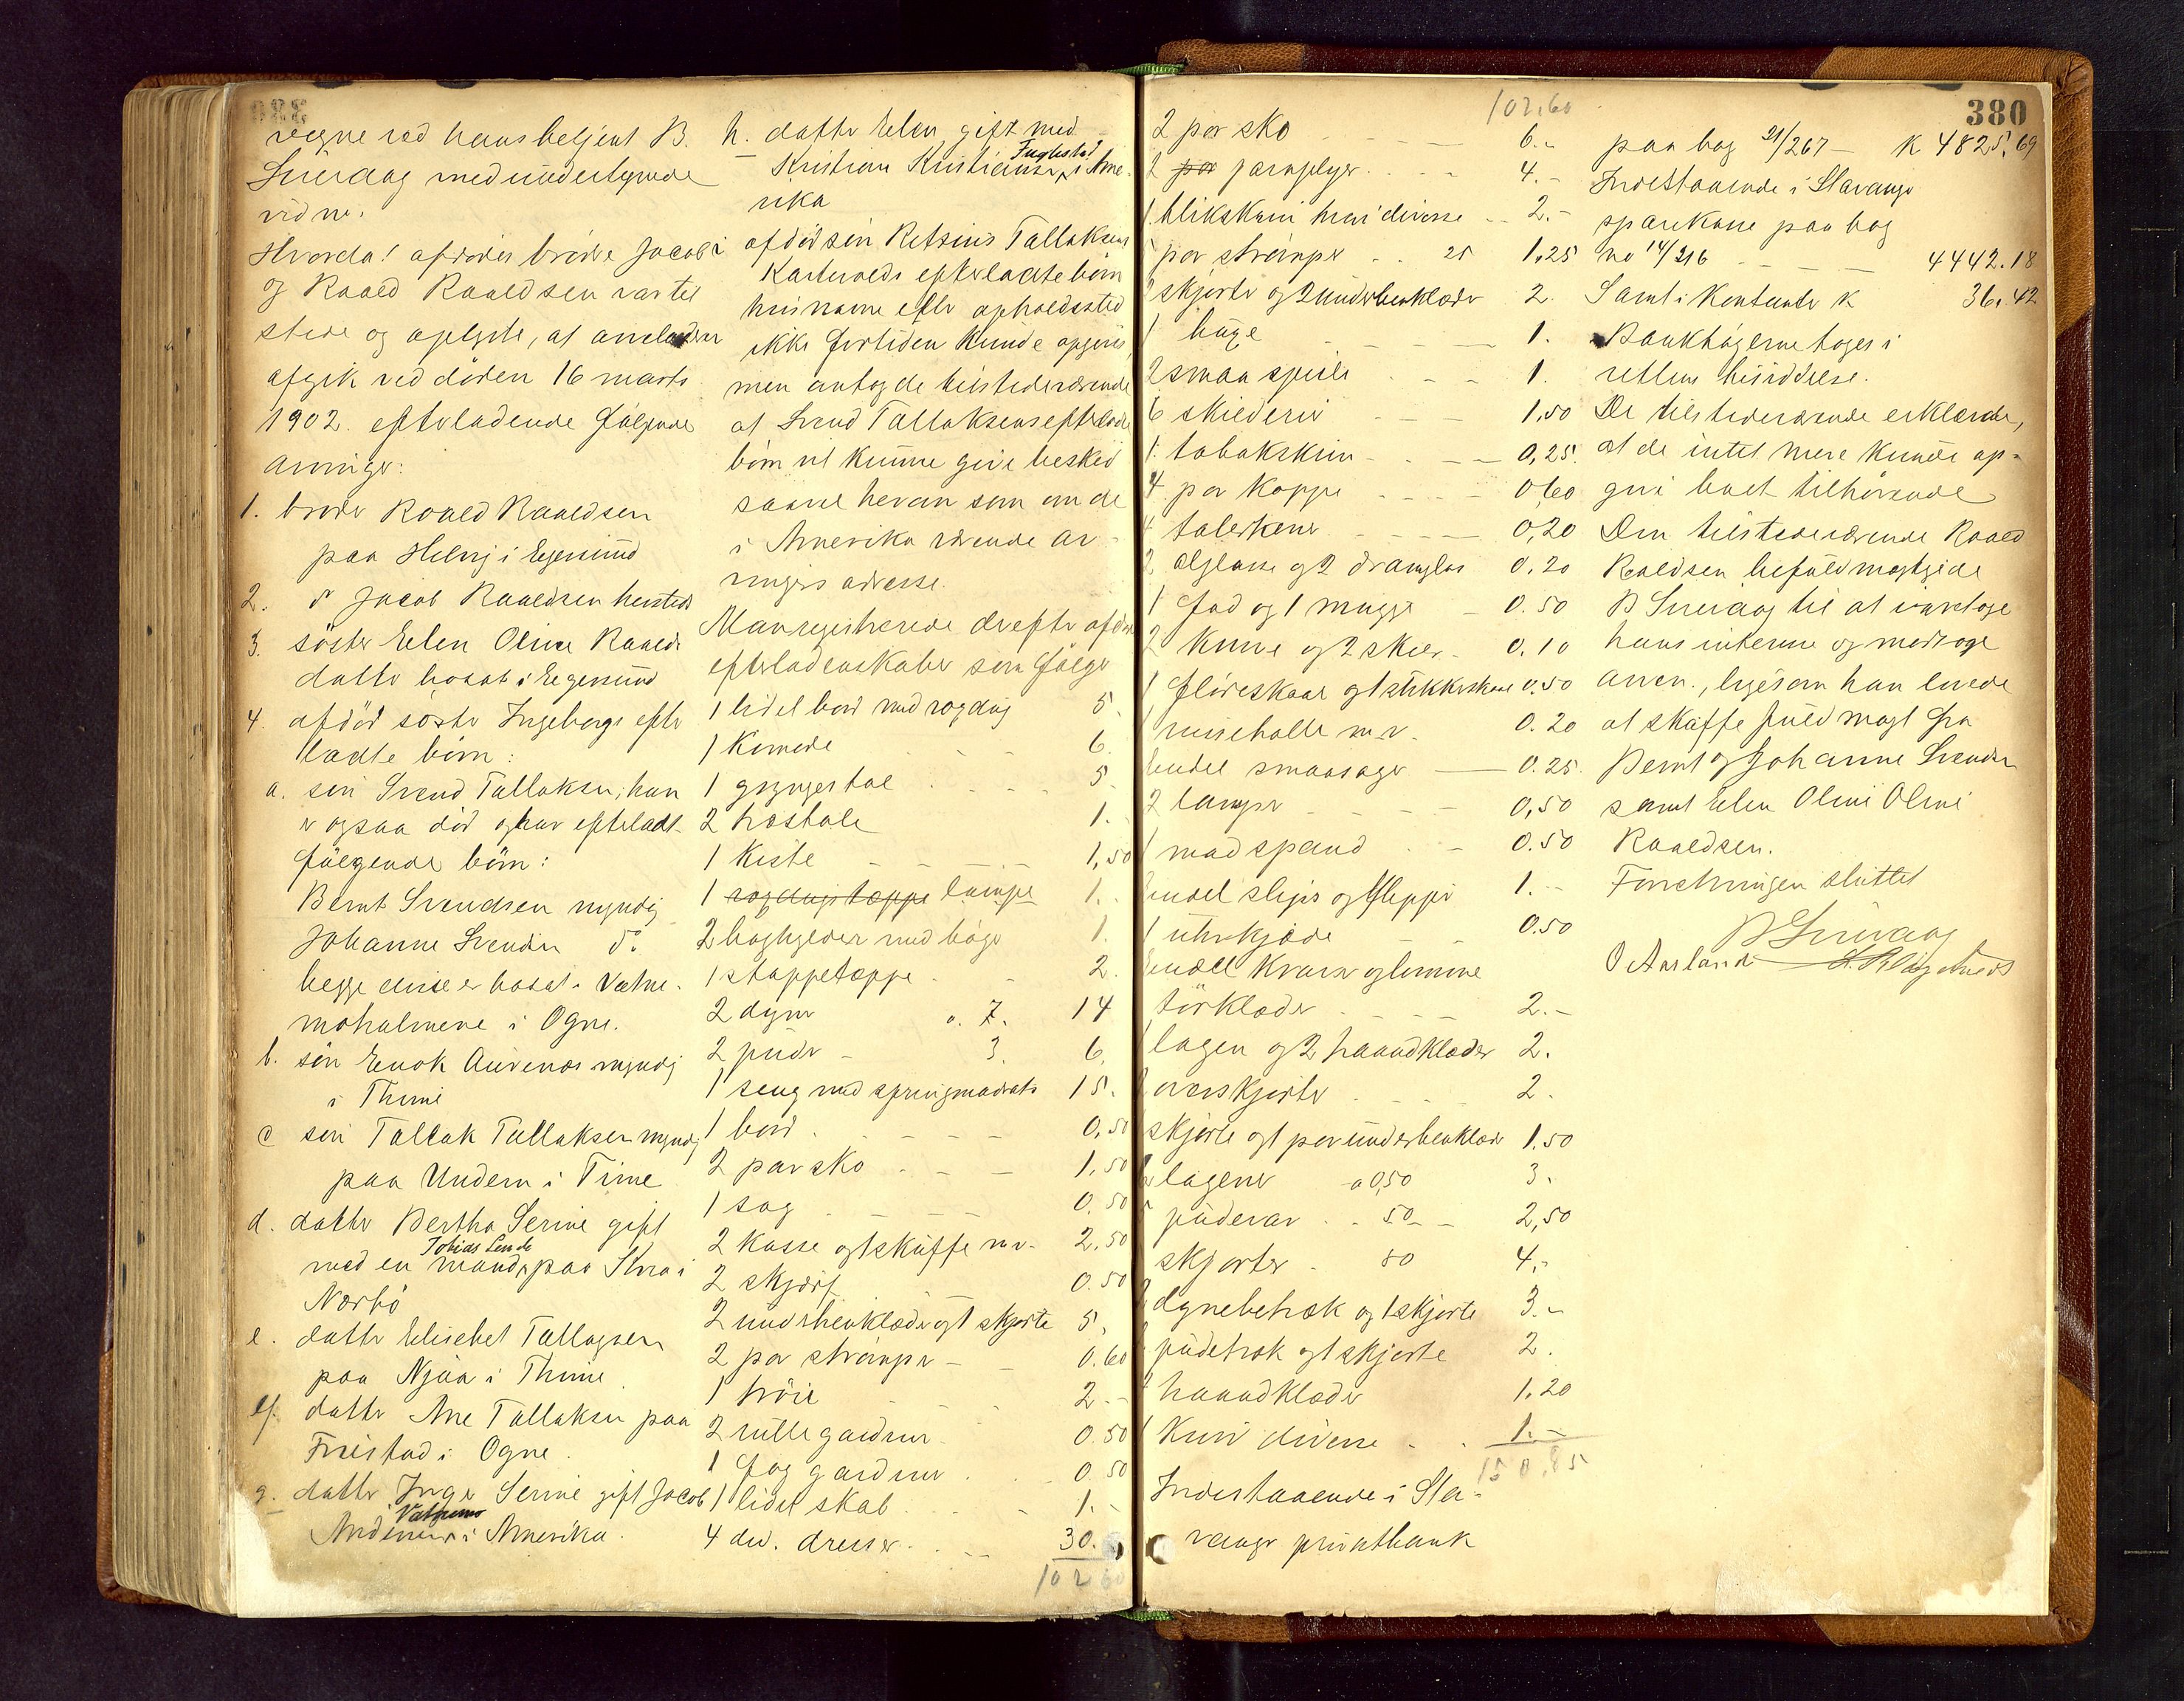 vegne ved hans betjent B.
Sirevaag med undertegnede
vidne.
Hvorda! afdødes brødre Jacob
og Raaed Raaedsen var til
stede og oplyste, at anmelderen
afgik ved døden 16 marts
1902. efterladende følgende
arvinger:
1. broder Roaled Raaldsen
paa Hetlny i Egersund
2. do Jacob Raaldsen hersteds
3. søster Elen Oline Raalds
datter bosat i Egersund
4. afdød søster Ingeborgs efter
ladte børn:
a. søn Svend Tallaksen, han
er ogsaa død og har efterladt
følgende børn:
Bernt Svendsen myndig
Johanne Svendsen do
begge disse er bosat i Vatne-
moholmene i Ogne.
b. søn Enok Aurenes myndig
i Thime
c søn Tallak Tallaksen myndig
paa Undem i Time
d. datter Bertha Serine gift
Tobias Lende
med en mand, paa Kvia i
Nærbø
e. datter Elisebet Tallagsen
paa Njaa i Thime
f. datter Ane Tallaksen paa
Fuistad i Ogne.
g. datter Inger Serine gift Jacob
Vatnemo
Andersen i Amerika.
h. datter Elen gift med
Fuglestad
Kristian Kristiansen, i Ame-
rika
i afdød søn Retsius Tallaksens
Kartevolds efterladte børn
hvis navne eller opholdssted
ikke fortiden kunde opgives,
men antog de tilstedeværende
at Svend Tallaksens efterladte
børn vil kunne give besked
saavel herom som om de
i Amerika værende ar-
vingers adresse.
Man registrerede derefter afdødes
efterladenskaber som følger
1 lidet bord med voxdug 5.
1 Komode 6.
1 gyngestol 5.
2 træstole 1.
1 Kiste 1,50
1 voxdugstæppe lampe 1.
2 boghylder med bøger 1.
1 stoppetæppe 2.
2 dyner a. 7. 14
2 puder 3. 6.
1 seng med springmadrats 15.
1 bord 0,50
2 par sko 1,50
1 sag 0,50
2 kasse og 1 skuffe m.v. 2.50
2 skjærf 0.50
2 underbenklæder og 1 skjorte 5.
2 par strømper 0.60
1 trøie 2.-
2 rullegardiner 0.50
1 fag gardiner 0.50
1 lidet skab 1.-
4 div. dresser 30.
102.60
102,60
380
2 par sko 6.-
2 par 4.-
1 blikskrin hvori diverse 2.-
5 par strømper 25 1,25
2 skjorter og 2 underbenklæder 2.
1 buxe 1.
2 smaa speile 1.
6 skilderier 1,50
1 tobakskrin 0,25.
4 par kopper 0,60
4 talerkener 0,20
2 ølglasse og 2 dramglas 0.20
1 fad og 1 mugge 0.50
2 knive og 2 skeer 0.10
1 fløteskaal og 1 stikkerskaal 0.50
1 m.v. 0.20
Endel smaasager 0.25.
2 lamper 0,50
1 madspand 0.50
Endel slips og 1.-
1 uhrkjæde 0.50
Endel kraver og lomme
tørklæder 2.-
1 lagen og 2 haandklæder 2.
2 overskjorter 2.
skjorte og 1 par underbenklæder 1.50
6 lagener a 0,50 3.
5 pudevar 50 2,50
skjorter 80 4.-
dynebetræk og 1 skjorte 3.-
pudetræk og 1 skjorte 2.
haandklæder 1,20
1 Kurv diverse 1.-
150,85
Indestaaende i Sta-
vanger privatbank
paa bog 21/267 K 4825,69
Indestaaende i Stavanger
sparekasse paa bog
no 14/216 4442.18
Samt i Kontanter K 36.42
Bankbøgerne toges i
rettens besiddelse.
De tilstedeværende erklærede,
at de intet mere kunde op-
give boet tilhørende
Den tilstedeværende Raaed
Raaldsen befuldmægtigede
B Sirevaag til at ivaretage
hans interesse og modtage
arven., ligesom han lovede
at skaffe fuldmagt fra
Bernt og Johanne Svendsen
samt Elen Oline Oline
Raaldsen.
Forretningen sluttet
B Sirevaag
O Aarland